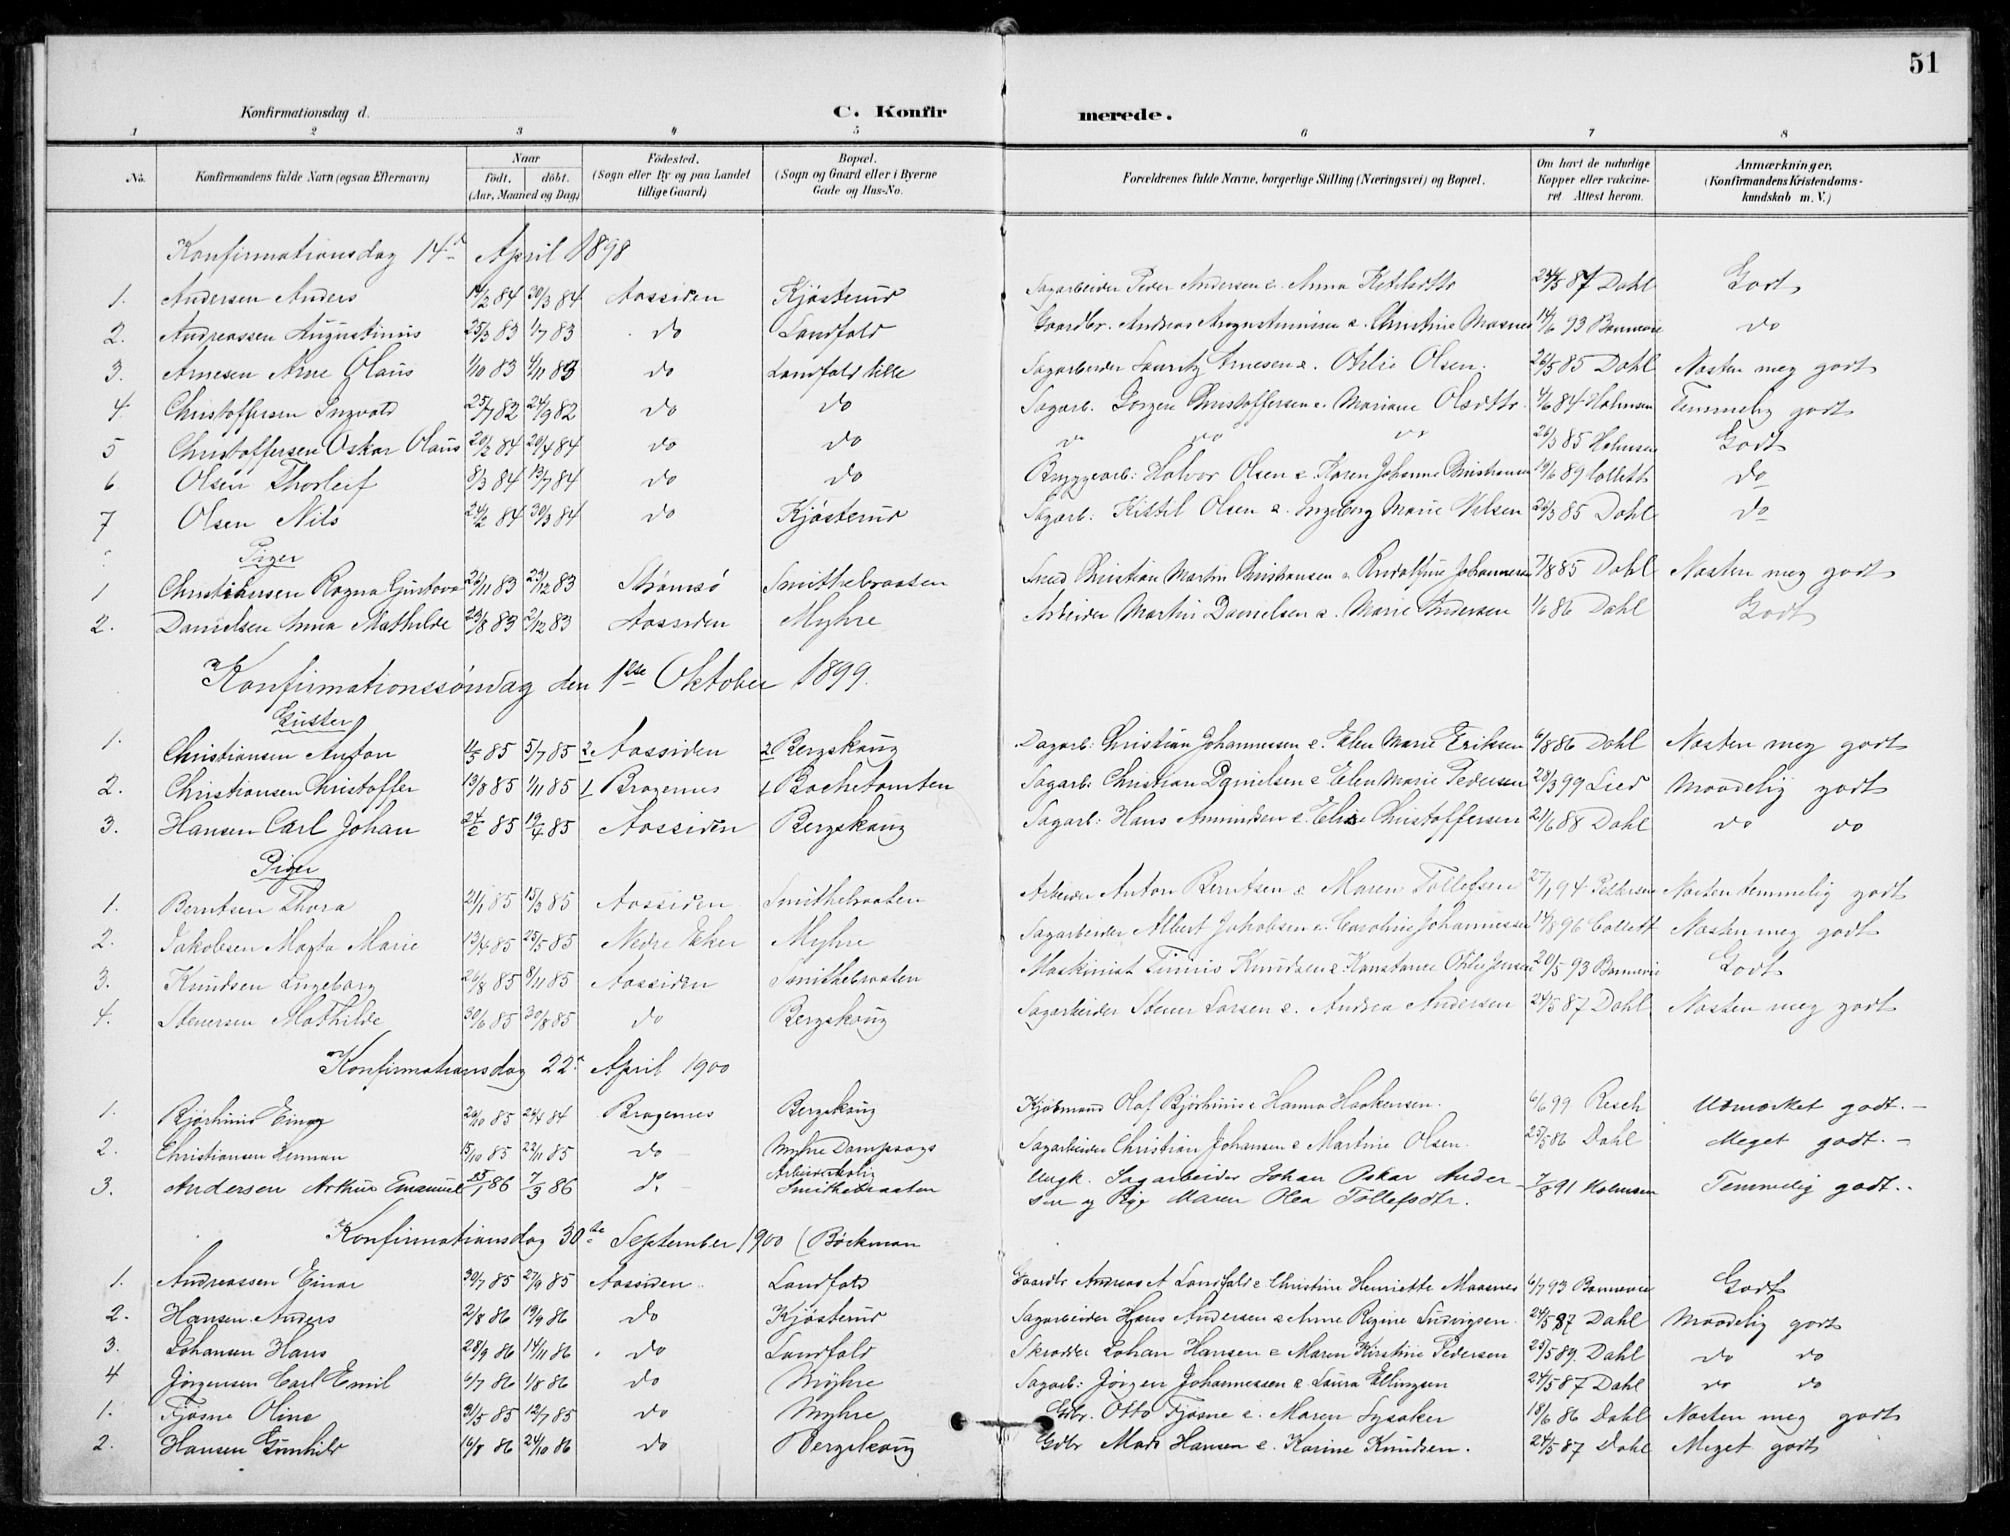 51
Konfirmationsdag d. C. Konfirmerede.
1 2 3 4 5 6 7 8
No. Konfirmandens fulde Navn (ogsaa Efternavn) Naar født, døbt. (Aar, Maaned og Dag) Fødested. (Sogn eller By og paa Landet tillige Gaard) Bopæl. (Sogn og Gaard eller i Byerne Gade og Hus-No. Forældrenes fulde Navne, borgerlige Stilling (Næringsvei) og Bopæl. Om havt de naturlige Kopper eller vakcineret. Attest herom. Anmærkninger, (Konfirmandens Kristendomskundskab m. V.)
Konfirmationsdag 14d April 1898
1. Andersen Anders 14/2 84 30/3 84 Aassiden Kjøsterud Sagarbeider Peder Andersen e. Anna Ketilsdtr 24/5 87 Dahl Godt
2. Andreassen Augustinus 25/3 83 1/7 83 do Landfald Gaardbr. Andreas Augustinussen e. Christine Maanes 14/6 93 Bonnevie do
3. Arnesen Arne Olaus 1/10 83 4/11 83 do Landfald lille Sagarbeider Lauritz Arnesen e. Otilie Olsen. 26/5 85 Dahl Næsten meg godt
4. Christoffersen Ingvald 25/7 82 24/9 82 do do Sagarb. Jørgen Christoffersen e. Mariane Olsdtr. 4/6 84 Holmsen Temmelig godt
5 Christoffersen Oskar Olaus 20/2 84 20/4 84 do do do do do 26/3 85 Holmsen Godt
6. Olsen Thorleif 8/3 84 13/7 84 do do Bryggearb: Halvor Olsen e. Karen Johanne Christiansen 19/6 89 Collett do
7 Olsen Nils 24/2 84 30/3 84 do Kjøsterud Sagarb: Kittil Olsen e. Ingeborg Marie Nilsen 26/3 85 Dahl do
Piger
1 Christiansen Ragna Gustava 26/11 83 23/12 83 Strømsø Smithebraaten Smed Christian Martin Christiansen e Rudolfine Johannesen 7/8 85 Dahl Næsten meg godt
2. Danielsen Anna Mathilde 23/8 83 2/12 83 Aassiden Myhre Arbeider Martin Danielsen e. Marie Andersen 1/6 86 Dahl Godt
Konfirmationssøndag den 1ste Oktober 1899.
Gutter
1. Christiansen Anton 4/5 85 5/7 85 2 Aassiden 2 Bergskaug Dagarb: Christian Johannessen e. Elen Marie Eriksen 6/8 86 Dahl Næsten meg godt
2. Christiansen Christoffer 13/8 85 1/11 85 1 Bragernes 1 Bachetomten Sagarb: Christian Danielsen e Elen Marie Pedersen 28/3 99 Lied Maadelig godt
3. Hansen Carl Johan 24/2 85 19/4 85 Aassiden Bergskaug Sagarb: Hans Amundsen e. Elise Christoffersen 21/6 88 Dahl do do
Piger
1. Berntsen Thora 21/1 85 15/3 85 Aassiden Smithebraaten Arbeider Anton Berntsen e Maren Tollefsen 27/1 94 Pettersen Næsten temmelig godt
2. Jakobsen Magta Marie 13/4 85 25/5 85 Nedre Eker Myhre Sagarbeider Albert Jakobsen e. Caroline Johannessen 14/8 96 Collett Næsten meg godt
3. Knudsen Ingeborg 26/8 85 8/11 85 Aassiden Smithebraaten Maskinist Tinnis Knudsen e. Konstance Otilie Jensen 20/5 93 Bonnevie Godt
4. Stenersen Mathilde 30/6 85 30/8 85 do Bergskaug Sagarbeider Stener Larsen e. Andrea Andersen 24/5 87 Dahl Næsten meg godt
Konfirmationsdag 22d April 1900
1. Bjørhuus Einar 26/10 85 Bragernes Bergskaug Kjøbmand Olaf Bjørhuus e Hanna Haakensen. 6/6 99 Resch Udmærket godt.
2. Christiansen Herman 15/10 85 22/11 85 do Myhre Dampsags Arbeiderbolig Sagarbeider Christian Johansen e Martine Olsen. 25/5 86 Dahl Meget godt.
3. Andersen Arthur Emanuel 25/1 86 7/3 86 do Smithebraaten Ungk. Sagarbeider Johan Oskar Andersen og Pige Maren Olea Tollefsdtr. 7/8 91 Holmsen Temmelig godt.
Konfirmationsdag 30te September 1900 (Bøckman
1. Andreassen Einar 30/7 85 27/9 85 Aassiden Landfald Gaardbr Andreas A Landfald e Christine Henriette Maanes 6/7 93 Bonnevie Godt
2. Hansen Anders 2/8 86 19/9 86 do Kjøsterud Sagarbeider Hans Andersen e Anne Regine Ludvigsen. 24/5 87 Dahl Maadelig godt
3. Johansen Hans 28/9 86 14/11 86 do Landfald Skrædder Johan Hansen e Maren Kirstine Pedersen 25/5 89. Dahl do do
4 Jørgensen Carl Emil 6/7 86 1/8 86 do Myhre Sagarb: Jørgen Johannessen e Laura Ellingsen 24/5 87 Dahl do do
1. Fjøsne Oline 31/5 85 12/7 85 do Myhre Gdbr. Otto Fjøsne e. Maren Lysaker 18/6 86 Dahl Næsten meg godt
2. Hansen Gunhild 16/8 86 24/10 86 do Bergskaug Gdbr Mads Hansen e. Karine Knudsen. 24/5 87 Dahl Meget godt